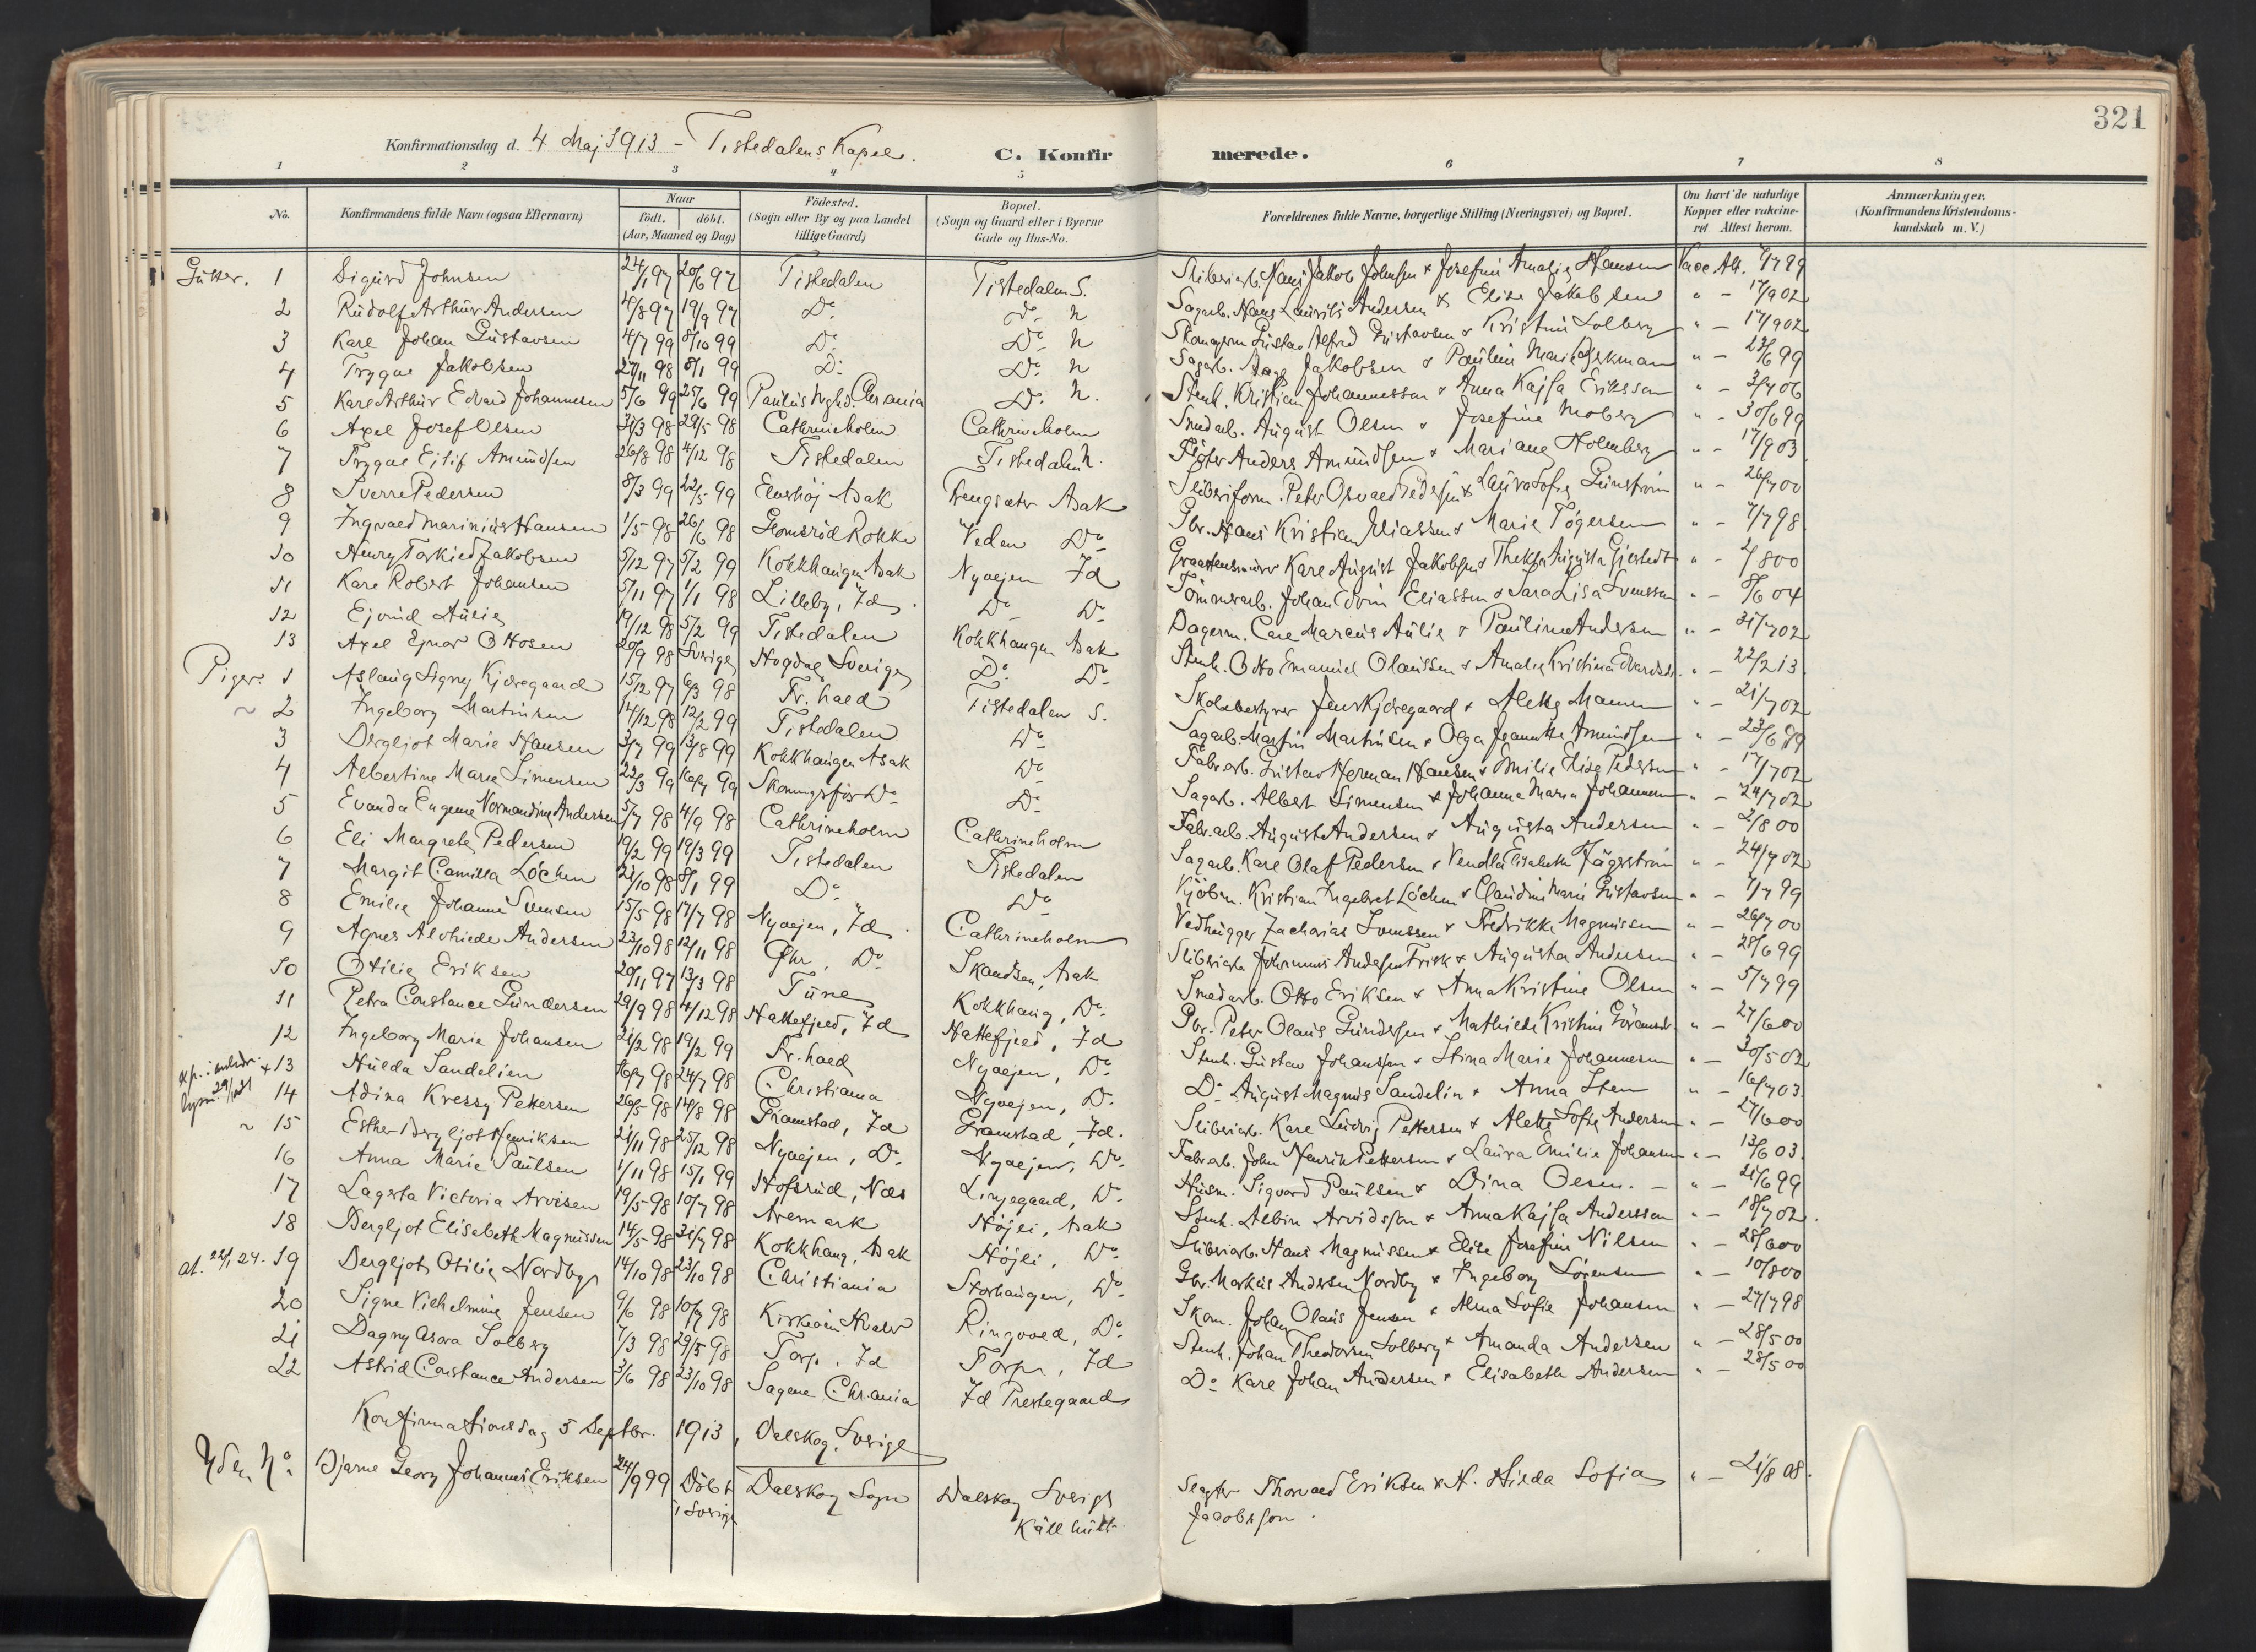 321
Konfirmationsdag d. 4 Maj 1913 - Tistedalens Kapel.
C. Konfirmerede.
1 2 3 4 5 6 7 8
No. Konfirmandens fulde Navn (ogsaa Efternavn) Naar födt. döbt. (Aar, Maaned og Dag) Födested. (Sogn eller By og paa Landet tillige Gaard) Bopæl. (Sogn og Gaard eller i Byerne Gade og Hus-No. Forældrenes fulde Navne, borgerlige Stilling (Næringsvei) og Bopæl. Om havt de naturlige Kopper eller vakcineret Attest herom. Anmærkninger. (Konfirmandens Kristendomskundskab m. V.)
Gutter. 1 Sigurd Johnsen 24/1 97 20/6 97 Tistedalen Tistedalen S. Sliberiarb. Hans Jakob Johnsen & Josefine Amalie Hansen Vacc. Att. 4/7 99
2 Rudolf Arthur Andersen 4/8 97 19/9 97 Do Do N Sagarb. Hans Laurits Andersen & Elise Jakobsen " - 17/9 02
3 Karl Johan Gustavsen 4/7 99 8/10 99 Do Do N Skomagerm Gustav Alfred Gustavsen & Kristine Solberg " - 17/9 02
4 Trygve Jakobsen 27/11 98 8/1 99 Do Do N Sagarb. Aage Jakobsen & Pauline Marie " - 23/6 99
5 Karl Arthur Edvard Johannesen 5/6 99 25/6 99 Paulus Mgh. Chr.ania Do N. Stenh. Kristian Johannesson & Anna Kajsa Eriksson " - 3/7 06
6 Axel Josef Olsen 31/3 98 29/5 98 Cathrineholm Cathrineholm Smedarb. August Olsen & Josefine Moberg " - 30/6 99
7 Trygve Ejlif Amundsen 26/8 98 4/12 98 Tistedalen Tistedalen N. Fløter Anders Amundsen & Mariane Holmberg " - 17/9 03
8 Sverre Pedersen 8/3 99 22/5 99 Enershöj Asak Trengsæter Asak Sliberiform. Peter Osvald Pedersen & Laura Sofie " - 26/7 00
9 Ingvald Marinius Hansen 1/5 98 26/6 98 Gromsröd Rokke Veden Do Gbr. Hans Kristian Eliassen & Marie Tögersen " - 7/7 98
10 Henry Torkild Jakobsen 5/12 97 5/2 99 Kokkhaugen Asak Nyvejen Id Karl August Jakobsen & Thekla Augusta " - 4/8 00
11 Karl Robert Johansen 5/11 97 1/1 98 Lilleby, Id. Do Do Tömmerarb. Johan Edvin Eliassen & Sara Lisa Svensson " - 8/6 04
12 Ejvind Aulie 19/12 98 5/2 99 Tistedalen Kokkhaugen Asak Dagerm. Carl Marius Aulie & Pauline Andersen " - 31/7 02
13 Axel Ejnar Ottosen 20/9 98 Sverige Hogdal Sverige Do Do Stenh. Otto Emanuel Olaussen & Amalie Kristina Edvardsd. " - 22/2 13.
Piger. 1 Aslaug Signy Kjæregaard 15/12 97 6/3 98 Fr.hald Tistedalen S. Skolebestyrer Jens Kjæregaard & Alette Mamen " - 21/7 02
~ 2 Ingeborg Martinsen 14/12 98 12/2 99 Tistedalen Do Sagarb. Martin Martinsen & Olga Jeanette Amundsen " - 23/6 99
3 Bergljot Marie Hansen 3/7 99 13/8 99 Kokkhaugen Asak Do Fabr.arb. Gustav Herman Hansen & Emilie Elise Pedersen " - 17/7 02
4 Albertine Marie Simensen 22/3 99 16/7 99 Skonningsfos Do Do Sagarb. Albert Simensen & Johanne Marie Johannesen " - 24/7 02
5 Evanda Eugenie Normandine Andersen 5/7 98 4/9 98 Cathrineholm Cathrineholm Fabr.arb. August Andersen & Augusta Andersen " - 2/8 00
6 Eli Margrete Pedersen 19/2 99 19/3 99 Tistedalen Tistedalen Sagarb. Karl Olaf Pedersen & Vendla Elisabeth Jägerström " - 24/7 02
7 Margit Camilla Löchen 21/10 98 8/1 99 Do Do Kjöbm. Kristian Ingebret Löchen & Claudine Marie Gustavsen " - 7/7 99
8 Emilie Johanne Svensen 15/5 98 17/7 98 Nyvejen, Id. Cathrineholm Vedhugger Zacharias Svenssen & Fredrikke Magnussen " - 26/7 00
9 Agnes Alvhilde Andersen 23/10 98 12/11 98 Chr. Do Skandsen, Asak Sliberiarb Johannes Andersen Frisk & Augusta Andersen " - 28/6 99
10 Otilie Eriksen 20/11 97 13/3 98 Tune Kokkhaug, Do Smedarb. Otto Eriksen & Anna Kristine Olsen " - 5/7 99
11 Petra Constance Gundersen 29/9 98 4/12 98 Hattefjeld, Id Hattefjeld, Id Gbr. Peter Olaus Gundersen & Mathilde Kristine Göransd. " - 27/6 00
12 Ingeborg Marie Johansen 21/2 98 19/2 99 Fr.hald Nyvejen, Do Stenh. Gustav Johansson & Stina Marie Johannesen " - 30/5 02
+ 13 Hulda Sandelien 16/7 98 24/7 98 Christiania Nyvejen, Do Do August Magnus Sandelin & Anna Sten " - 16/7 03.
14 Adina Kressy Pettersen 26/5 98 14/8 98 Gramstad, Id Gramstad, Id. Sliberiarb. Karl Ludvig Pettersen & Alette Sofie Andersen " - 27/6 00
~ 15 Esther Bergljot Henriksen 21/11 98 25/12 98 Nyvejen, Do Nyvejen, Do Fabr.arb. John Henrik Pettersen & Laura Emilie Johansen " - 13/6 03.
16 Anna Marie Paulsen 1/11 98 15/1 99 Hofsrud, Næs Linjegaard, Do Husm. Sigvard Paulsen & Dina Olsen. - " - 21/6 99
17 Lagerta Victoria Arvesen 19/5 98 10/7 98 Aremark Höjli, Asak Stenh. Albin Arvidsson & Anna Kajsa Andersson " - 18/7 02.
18 Bergljot Elisabeth Magnussen 14/5 98 31/7 98 Kokkhaug, Asak Höjli, Do Sliberiarb. Hans Magnussen & Elise Josefine Nilsen " - 28/6 00
at. 22/1 24. 19 Bergljot Otilie Nordby 14/10 98 23/10 98 Christiania Storhaugen, Do Gbr. Markus Andersen Nordby & Ingeborg Sörensen " - 10/8 00
20 Signe Vilhelmine Jensen 9/6 98 10/7 98 Kirkeöen Hvaler Ringvold, Do Skom. Johan Olaus Jensen & Alma Sofie Johansen " - 27/7 98
21 Dagny Asora Solberg 7/3 98 29/5 98 Torp, Id Torp, Id Stenh. Johan Theodorsen Solberg & Amanda Andersen " - 28/5 00
22 Astrid Constance Andersen 3/6 98 23/10 98 Sagene Chr.ania Id Prestegaard Do Karl Johan Andersen & Elisabeth Andersen " - 28/5 00
Konfirmationsdag 5 Septbr. 1913, Dalskog, Sverige
Uden No. Bjarne Georg Johannes Eriksen 24/9 99 Döbt i Sverige Dalskog Sogn Dalskog Sverige Slagter Thorvald Eriksen & A. Hilda Sofia Jacobsson. " - 21/8 08.